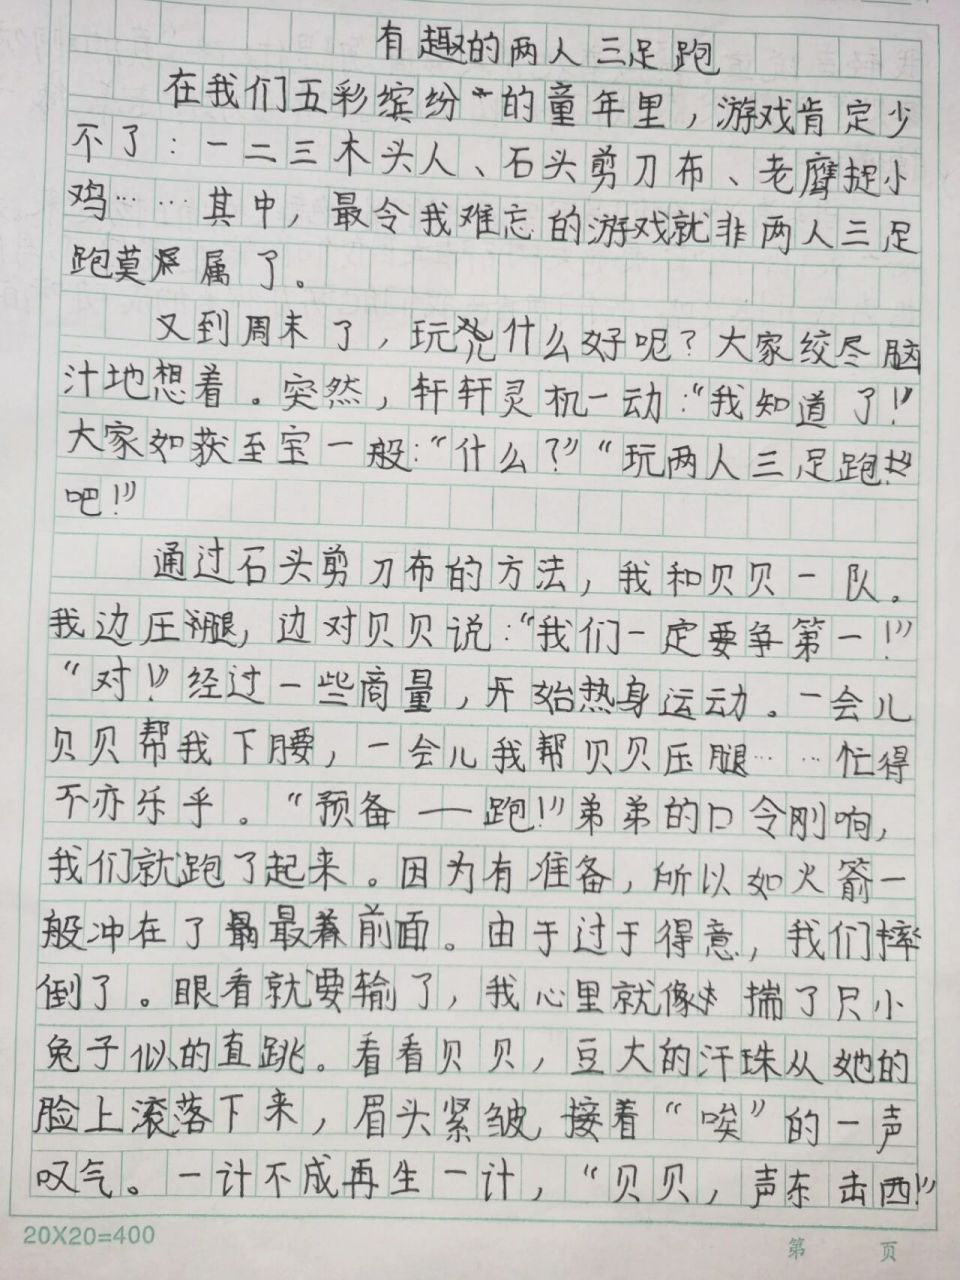 有趣的两人三足跑
在我们五彩缤纷的童年里，游戏肯定少
不了：一二三木头人、石头剪刀布、老鹰捉小
鸡……其中，最令我难忘的游戏就非两人三足
跑莫属了。
又到周末了，玩什么好呢？大家绞尽脑
汁地想着。突然，轩轩灵机一动：“我知道了！”
大家如获至宝一般：“什么？”“玩两人三足跑
吧！”
通过石头剪刀布的方法，我和贝贝一队。
我边压腿，边对贝贝说：“我们一定要争第一！”
“对！”经过一些商量，开始热身运动。一会儿
贝贝帮我下腰，一会儿我帮贝贝压腿……忙得
不亦乐乎。“预备——跑！”弟弟的口令刚响，
我们就跑了起来。因为有准备，所以如火箭一
般冲在了最前面。由于过于得意，我们摔
倒了。眼看就要输了，我心里就像揣了只小
兔子似的直跳。看看贝贝，豆大的汗珠从她的
脸上滚落下来，眉头紧皱，接着“唉”的一声
叹气。一计不成再生一计，“贝贝，声东击西！”
20X20=400
第 页